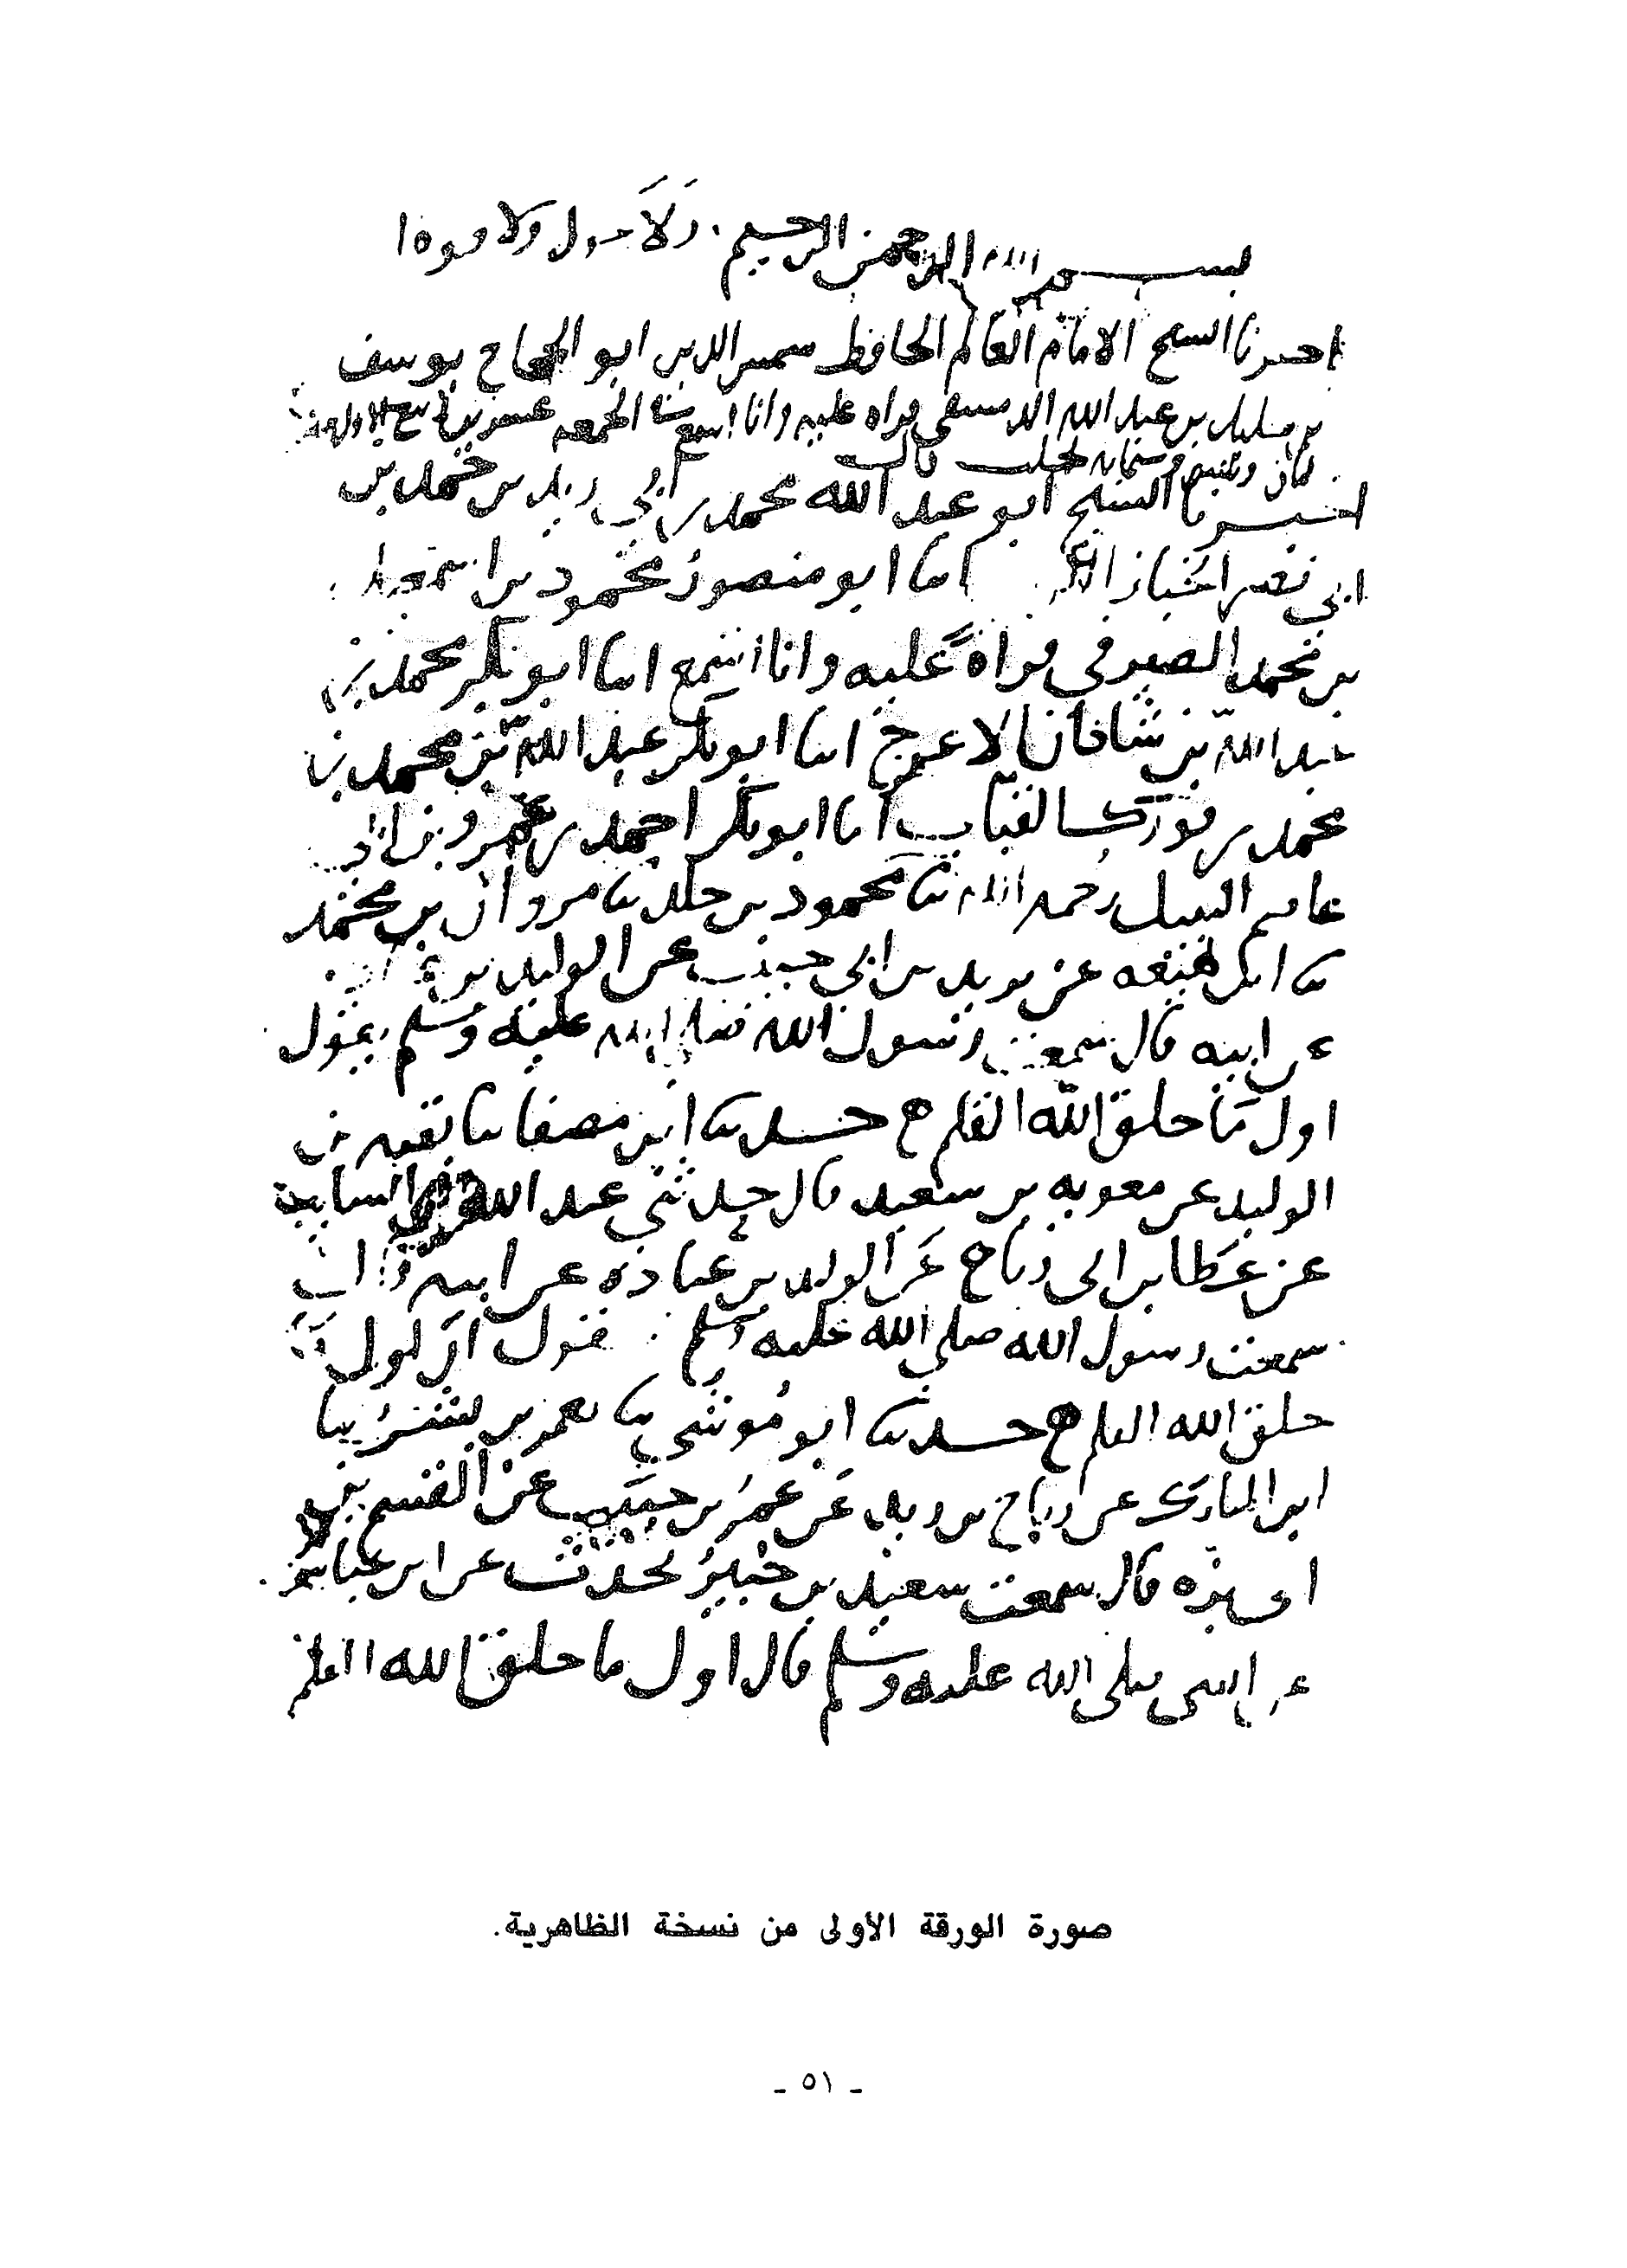 بسم الله الرحمن الرحيم . ولا حول ولا قوة ا
اخبرنا الشيخ الامام العالم الحافظ شمس الدين ابو الحجاج يوسف
بن خليل بن عبد الله الدمشقي قراه عليه وانا اسمع الجمعه
ثمان وثلثين وستمايه بحلب قال
اخبرنا الشيخ ابو عبد الله محمد بن ابي زيد بن حمد بن
ابي نصر انبا ابو منصور محمود بن اسمعيل
بن محمد الصيرفي قراةً عليه وانا اسمع انبا ابو بكر محمد بن
عبد الله بن شاذان الاعرج انبا ابو بكر عبد الله بن محمد بن
محمد بن فورك القباب انا ابو بكر احمد بن عمرو بن ابي
عاصم النبيل رحمه الله ثنا محمود بن خلد ثنا مروان بن محمد
ثنا ابن لهيعه عن يزيد بن ابي حبيب عن الوليد بن
عن ابيه قال سمعت رسول الله صلى الله عليه وسلم يقول
اول ما خلق الله القلم ح حدثنا ابن مصفا ثنا بقيه بن
الوليد عن معويه بن سعيد قال حدثني عبد الله السايب
عن عطا بن ابي رباح عن الوليد بن عباده عن ابيه قال
سمعت رسول الله صلى الله عليه وسلم يقول ان اول
خلق الله القلم ح حدثنا ابو موسى ثنا يعمر بن بشر ثنا
ابن المبارك عن رباح بن زيد عن عمر بن حبيب عن القسم بن
ابي بزه قال سمعت سعيد بن جبير يحدث عن ابن عباس
عن النبي صلى الله عليه وسلم قال اول ما خلق الله القلم
صورة الورقة الأولى من نسخة الظاهرية.
- ٥١ -